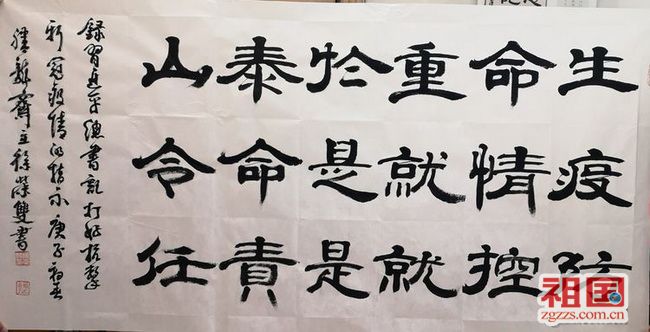 生命重於泰山
疫情就是命令
防控就是責任
錄習近平總書記打好抗擊
新冠疫情的指示 庚子初春
齋主徐榮雙書
祖国
zgzzs.com.cn